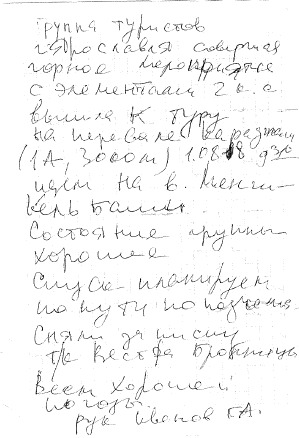 группа туристов
г. Ярославля совершая
горное мероприятие
с элементами 2 к.с
вышла к туру
на перевале
(1А, 3000м) 1.08
идём на в. Менги-
кель Баши.
Состояние группы
хорошее
Спуск планируем
по пути подъёма
Сняли записку
т/к Вестра
Всем хорошей
погоды.
рук Иванов Г.А.